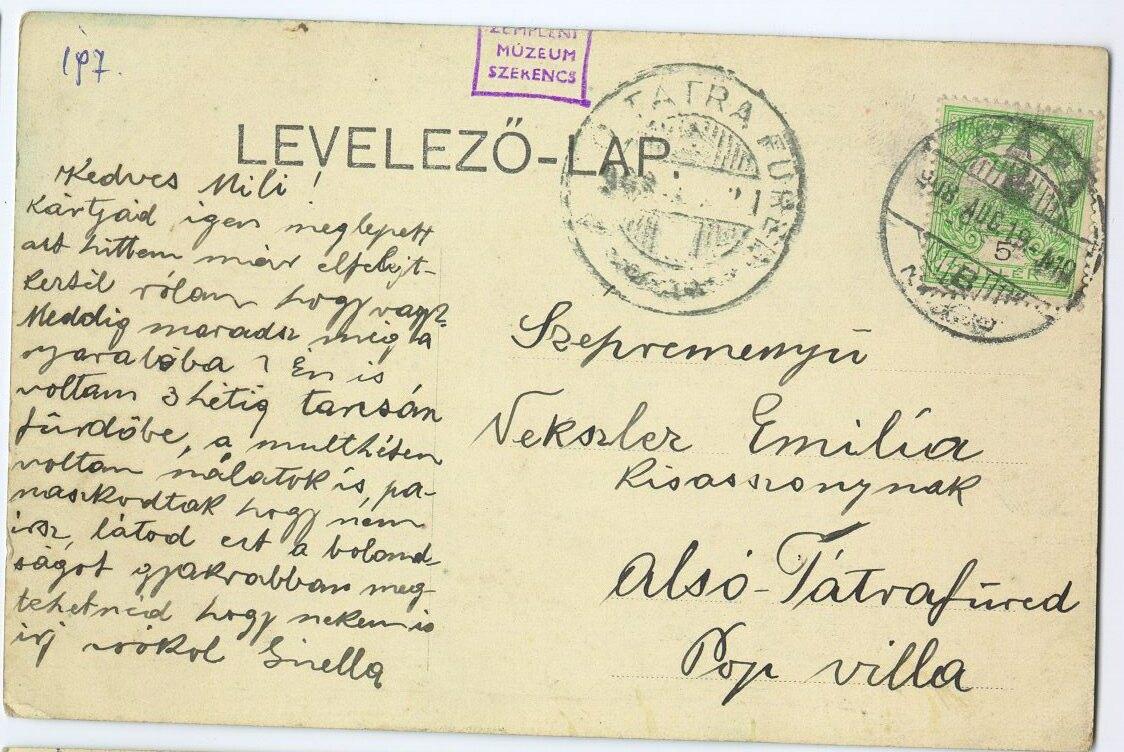 197.
ZEMPLÉNI
MÚZEUM
SZERENCS
TÁTRAFÜRED
908 AUG 19
5
LEVELEZŐ-LAP.
Kedves Mili!
Kártjád igen meglepett
azt hittem már elfelejt-
keztél rólam hogy vagy?
Meddig maradsz még a
nyaralóba? Én is
voltam 3 hétig tarcsán
fürdőbe, a multhéten
voltam nálatok is, pa-
naszkodtak hogy nem
irsz, látod ezt a bolond-
ságot gyakrabban meg-
tehetnéd hogy nekem is
irj csókol Gizella
Szépreményü
Nekszler Emilía
kisasszonynak
Alsó-Tátrafüred
Pop villa